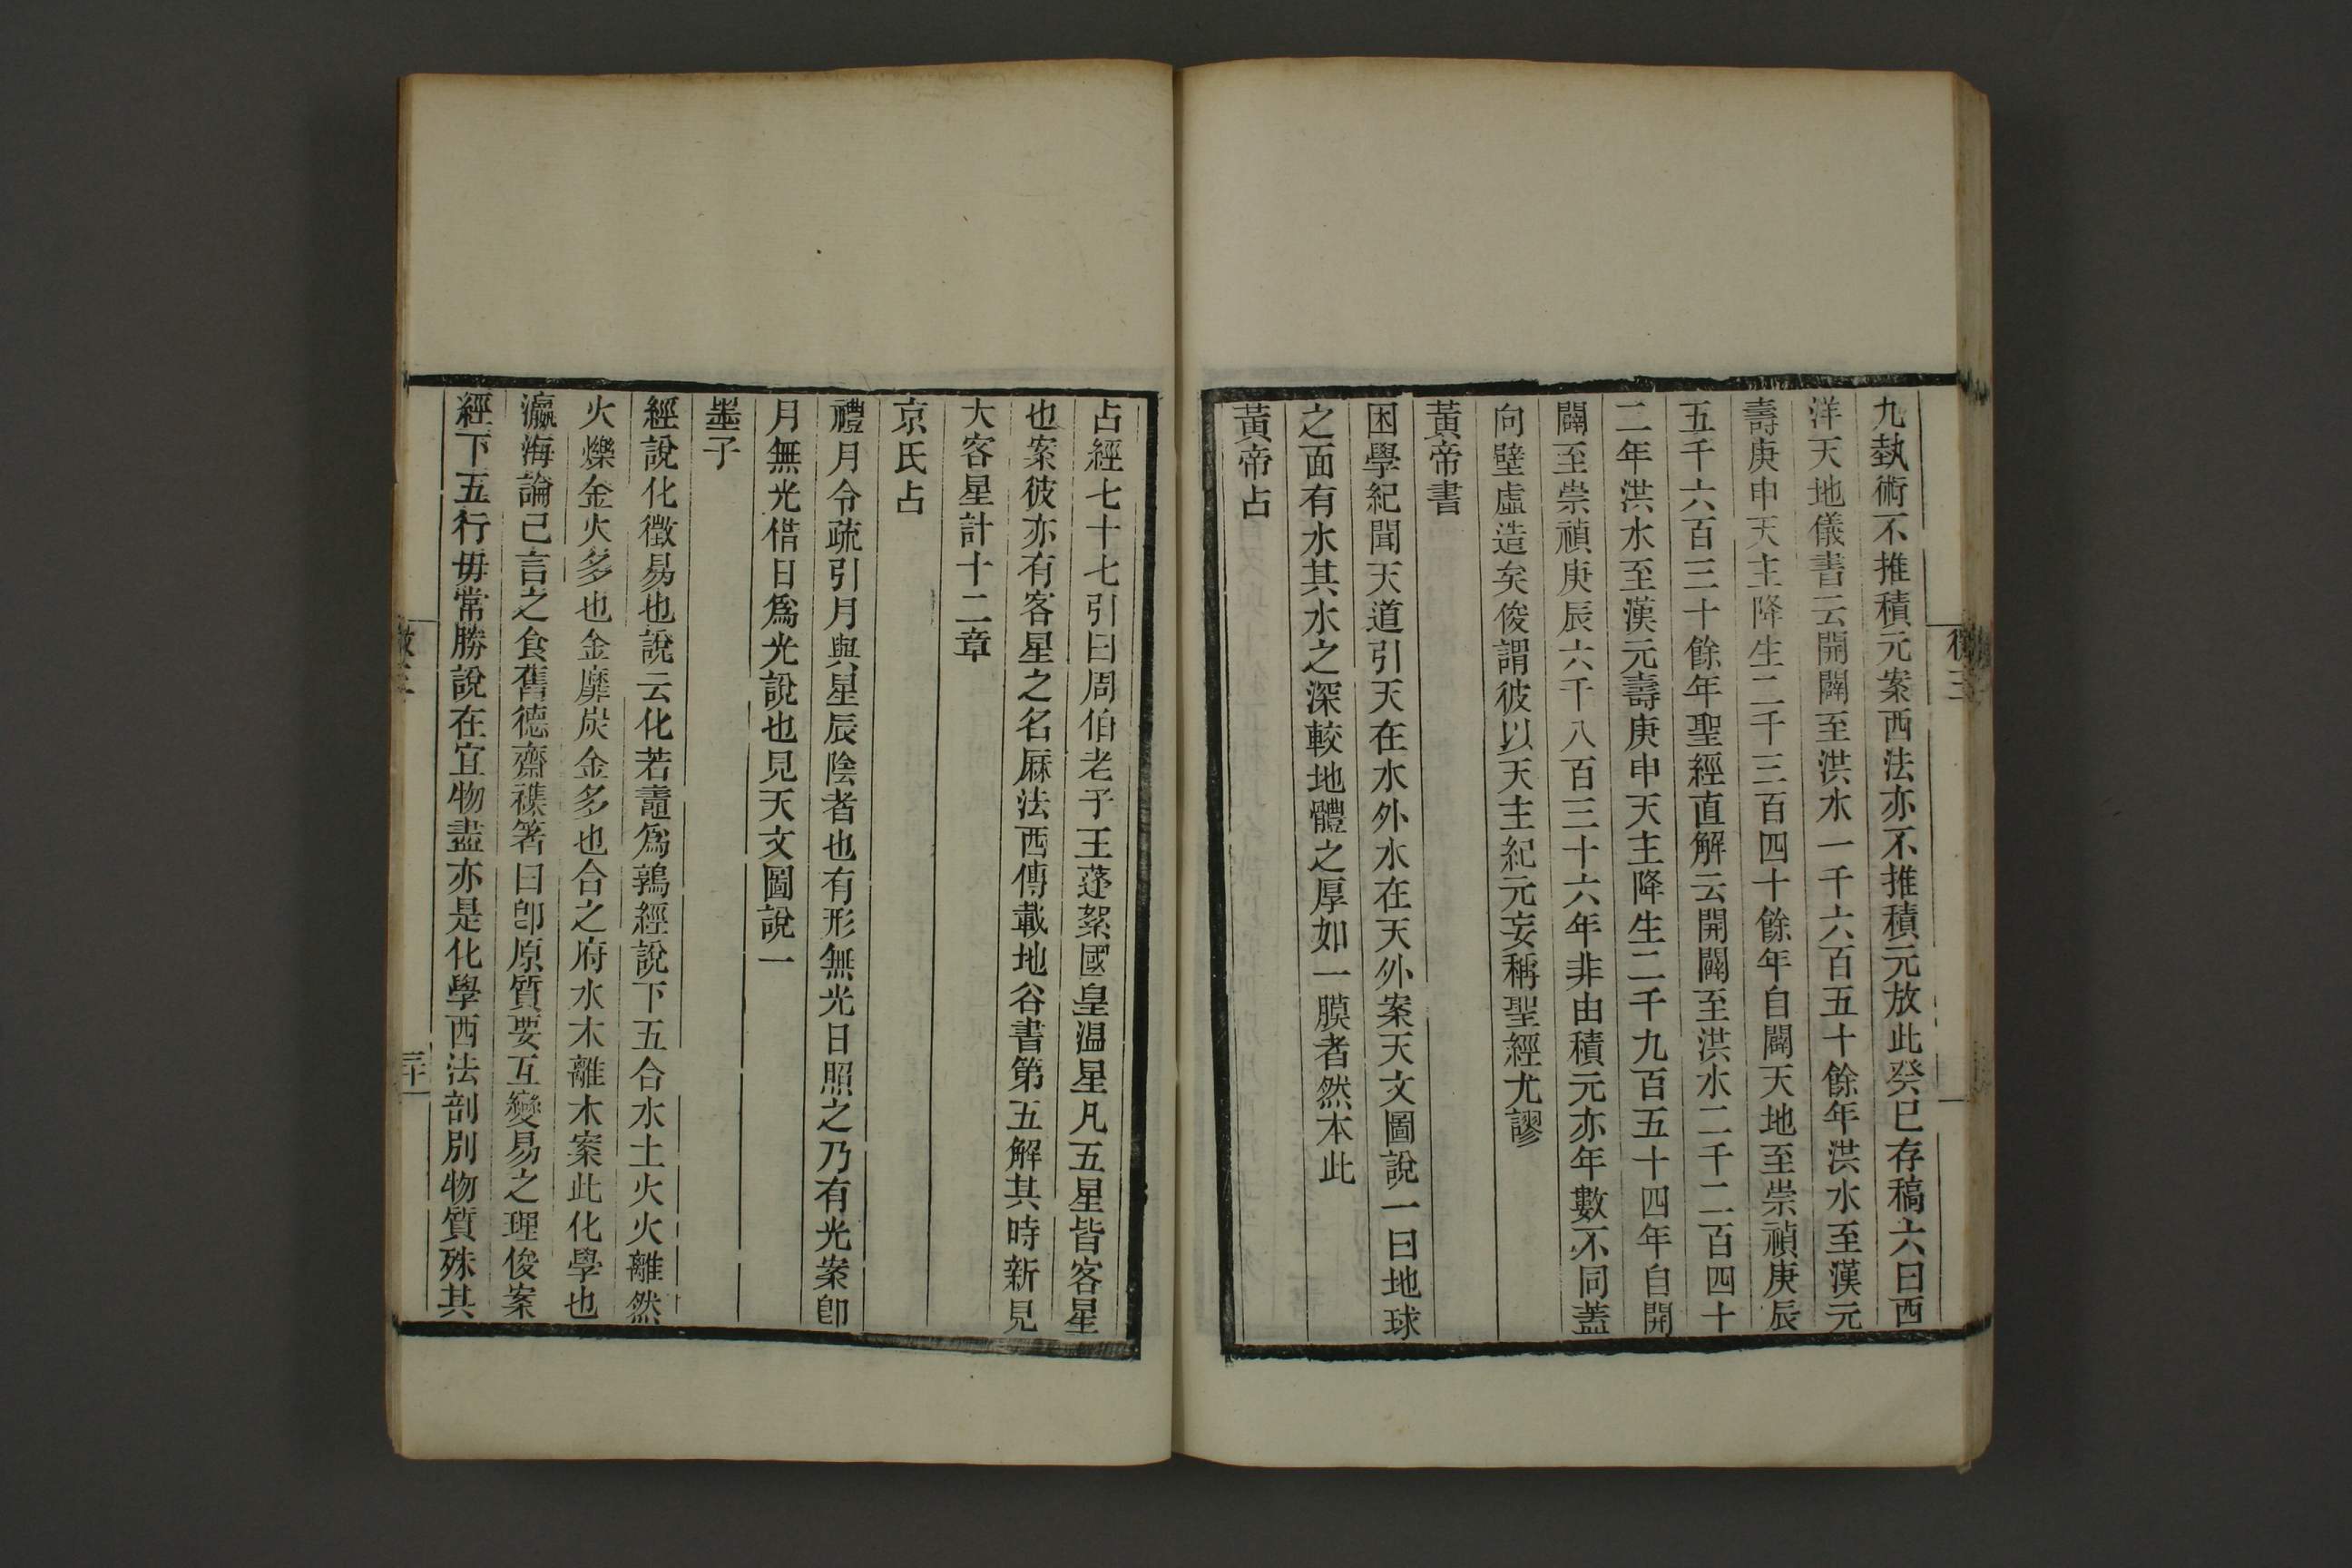 九執術不推積元案西法亦不推積元放此癸巳存稿六曰西
洋天地儀書云開闢至洪水一千六百五十餘年洪水至漢元
壽庚申天主降生二千三百四十餘年自闢天地至崇禎庚辰
五千六百三十餘年聖經直解云開闢至洪水二千二百四十
二年洪水至漢元壽庚申天主降生二千九百五十四年自開
闢至崇禎庚辰六千八百三十六年非由積元亦年數不同蓋
向壁虛造矣俊謂彼以天主紀元妄稱聖經尤謬
黃帝書
困學紀聞天道引天在水外水在天外案天文圖說一曰地球
之面有水其水之深較地體之厚如一膜者然本此
黃帝占
占經七十七引曰周伯老子王蓬絮國皇溫星凡五星皆客星
也案彼亦有客星之名厤法西傳載地谷書第五解其時新見
大客星計十二章
京氏占
禮月令疏引月與星辰陰者也有形無光日照之乃有光案卽
月無光借日爲光說也見天文圖說一
墨子
經說化徵易也說云化若鼃爲鶉經說下五合水土火火離然
火爍金火多也金靡炭金多也合之府水木離木案此化學也
瀛海論已言之食舊德齋襍箸曰卽原質要互變易之理俊案
經下五行毋常勝說在宜物盡亦是化學西法剖別物質殊其
三十一